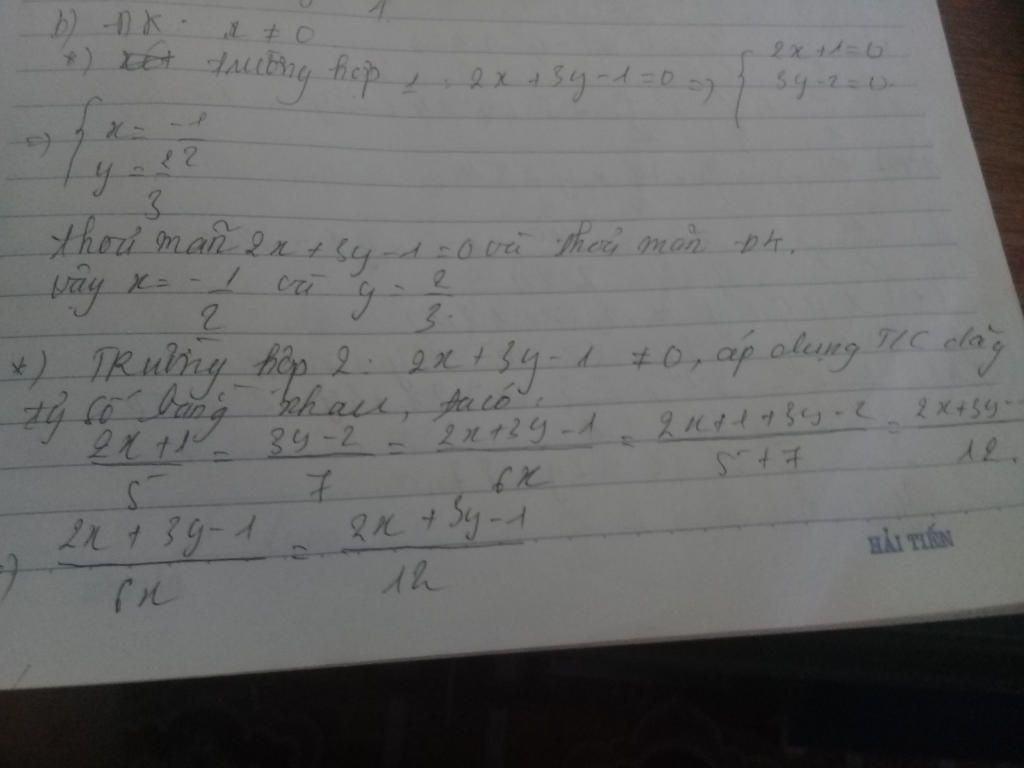 b) ĐK: x ≠ 0
*) trường hợp 1: 2x+3y-1=0 => { 2x+1=0
3y-2=0.
=> { x = -1/2
y = 2/3
thoả mãn 2x+3y-1=0 và thoả mãn ĐK.
vậy x = -1/2 và y = 2/3.
*) TRường hợp 2: 2x+3y-1 ≠ 0, áp dụng T/C dãy
tỷ số bằng nhau, ta có:
2x+1/5 = 3y-2/7 = 2x+3y-1/6x = 2x+1+3y-2/5+7 = 2x+3y-/12.
2x+3y-1/6x = 2x+3y-1/12
HẢI TIẾN